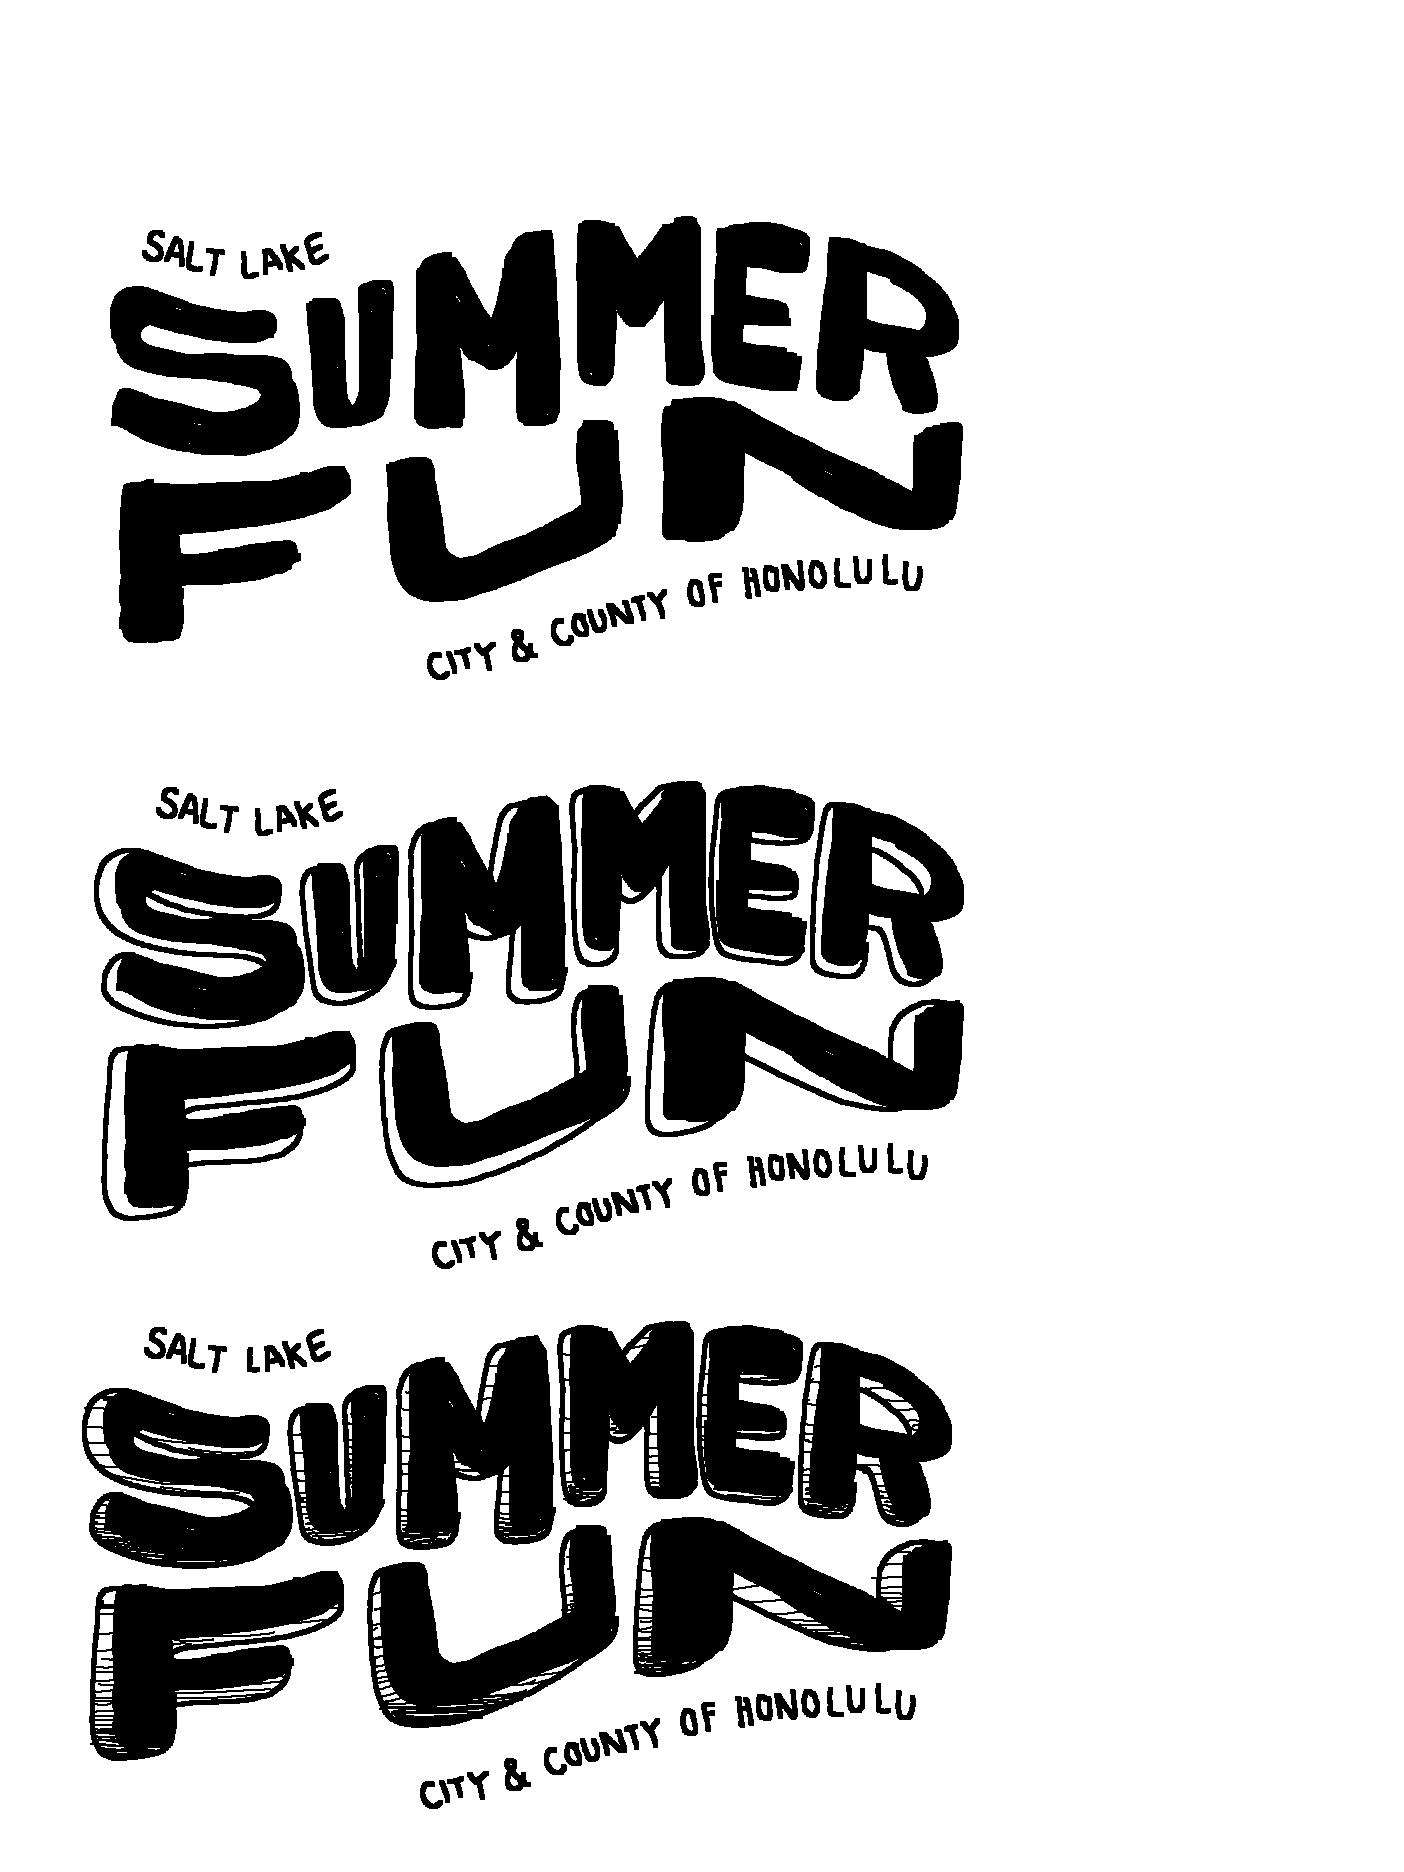 SALT LAKE
SUMMER
FUN
CITY & COUNTY OF HONOLULU
SALT LAKE
SUMMER
FUN
CITY & COUNTY OF HONOLULU
SALT LAKE
SUMMER
FUN
CITY & COUNTY OF HONOLULU